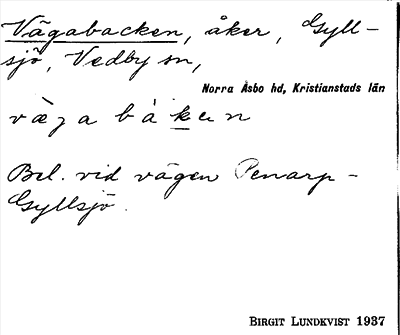 Vägabacken, åker, Gyll-
sjö, Vedby sn,
Norra Åsbo hd, Kristianstads län
Bel. vid vägen Penarp-
Gyllsjö.
BIRGIT LUNDKVIST 1937